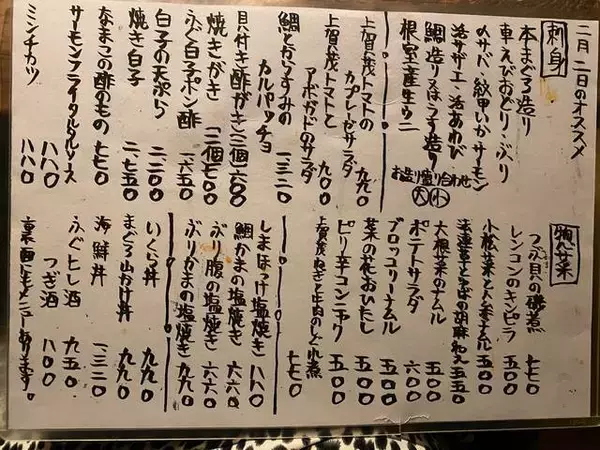 二月二日のオススメ
刺身
本まぐろ造り
車えびおどり・ぶり
〆サバ・紋甲いか・サーモン
活サザエ・活あわび
鯛造り
根室産生ウニ
お造り盛り合わせ
大 小
上賀茂トマトの
カプレーゼサラダ 九九〇
上賀茂トマトと
アボガドのサラダ 九〇〇
鯛とからすみの
カルパッチョ 一三二〇
貝付き酢がき(三個)六〇〇
焼きがき (二個)七〇〇
ふぐ白子ポン酢 一六五〇
白子の天ぷら 二二〇〇
焼き白子 二七五〇
なまこの酢のもの 七七〇
サーモンフライタルタルソース 八八〇
ミンチカツ 八八〇
惣菜
つぶ貝の磯煮 七七〇
レンコンのキンピラ 五五〇
小松菜と人参ナムル 五五〇
法蓮草としめじの胡麻和え 五五〇
大根菜のナムル 五五〇
ポテトサラダ 六〇〇
ブロッコリーナムル 五五〇
菜の花おひたし 五五〇
ピリ辛コンニャク 五五〇
上賀茂ねぎと牛肉のしぐれ煮 七七〇
しまほっけ塩焼き 八八〇
鯛かまの塩焼き 六六〇
ぶり腹の塩焼き 六六〇
ぶりかまの塩焼き 九九〇
いくら丼 九九〇
まぐろ山かけ丼 九九〇
海鮮丼 一三二〇
ふぐヒレ酒 九五〇
つぎ酒 八〇〇
裏面にもメニュー有ります。